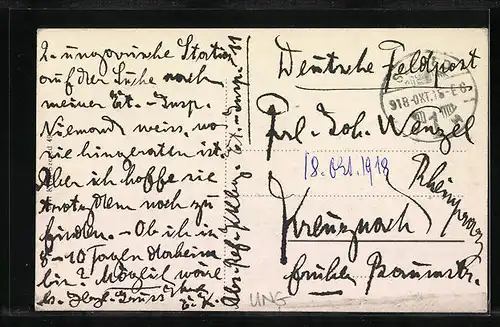 2. ungarische Station
auf der Suche nach
meiner Et.-Insp.
Niemand weiss, wo
sie hingeraten ist.
Aber ich hoffe sie
trotzdem noch zu
finden. - Ob ich in
8-10 Tagen daheim
bin? Möglich wäre
es. Herzl. Gruss
Deutsche Feldpost
Frl. Joh. Wenzel
18. Okt. 1918
Kreuznach
Rheinprov.
UNG